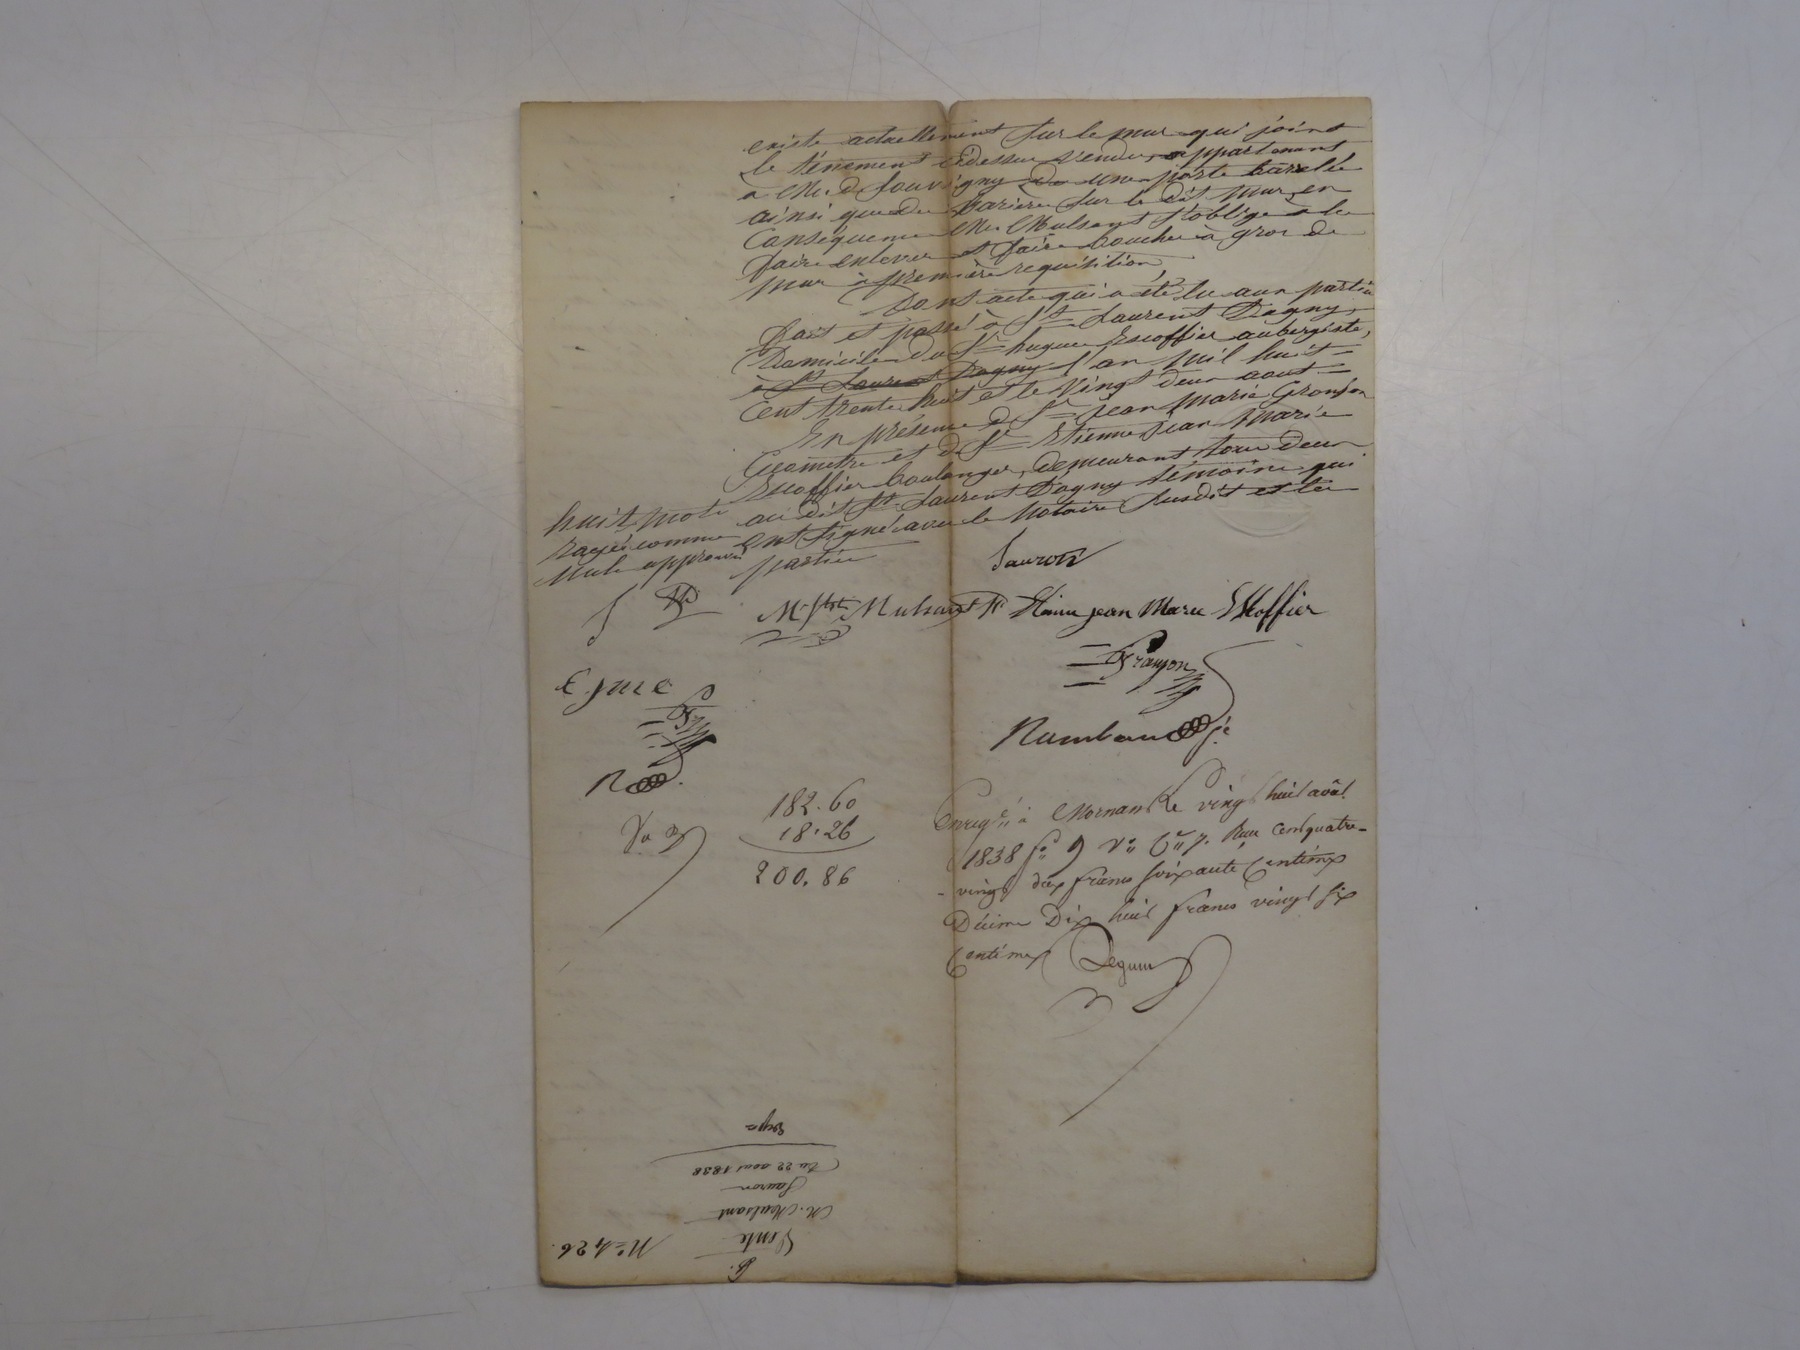 existe actuellement sur le mur qui joint
le tènement cidessus vendu, appartenant
à Mr. de Souvigny de une porte barelée
ainsi que de barière sur le dit mur, en
Conséquence Mr. Mulsant s'oblige à les
faire enlever et faire boucher à gros de
mur à première requisition,
Dont acte qui a été lu aux parties
fait et passé à St. Laurent Dagny,
Domicile du Sr. hugue Escoffier aubergiste,
à St Laurent Dagny l'an mil huit
Cent trente huit et le vingt deux aout
En présence de Sr. jean Marie Gronjon
Géomètre et de Sr. Etienne Jean Marie
Escoffier boulanger, demeurant tous deux
au dit St. Laurent Dagny témoins qui
ont signé avec le Notaire susdit et les
parties
huit mots
rayés comme
nuls approuvés
Sauron
Mulsant Etienne jean Marie Escoffier
E j m e
Granjon
Rambaud
182.60
18.26
200.86
Enregté à Mornant le vingt huit août
1838 fo 9 Vo Ce 7. Reçu Cent quatre-
vingt deux francs soixante Centimes
Décime Dix huit francs vingt six
Centimes
No 426.
Vente
M. Mulsant
Sauron
Du 22 aout 1838
Expa